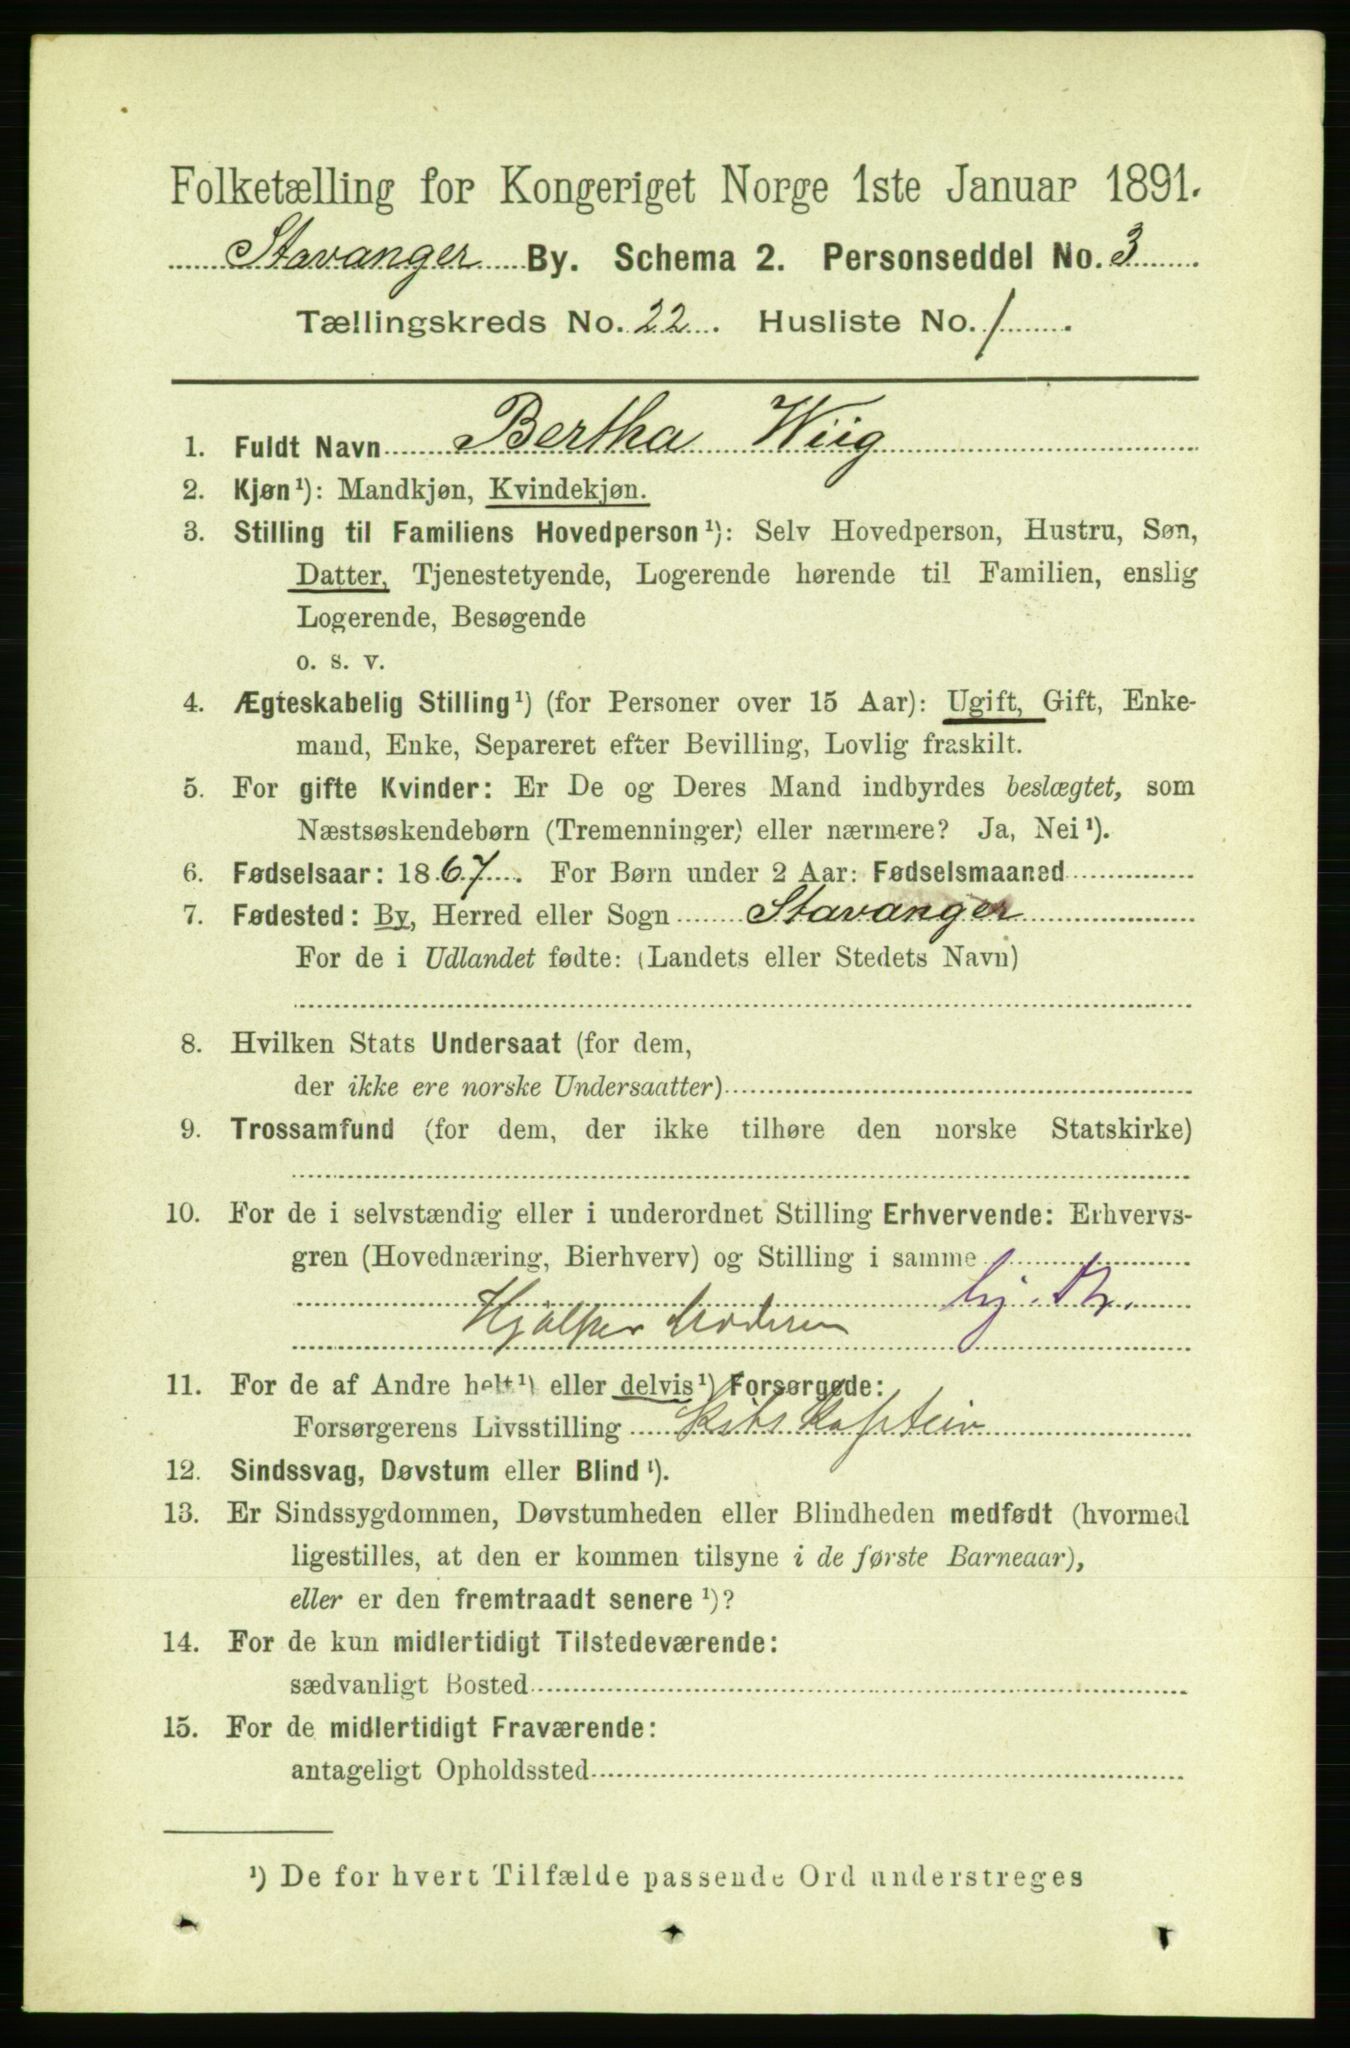 Folketælling for Kongeriget Norge 1ste Januar 1891.
Stavanger By. Schema 2. Personseddel No. 3
Tællingskreds No. 22. Husliste No. 1.
1. Fuldt Navn Bertha Wiig
2. Kjøn¹): Mandkjøn, Kvindekjøn.
3. Stilling til Familiens Hovedperson¹): Selv Hovedperson, Hustru, Søn,
Datter, Tjenestetyende, Logerende hørende til Familien, enslig
Logerende, Besøgende
o. s. v.
4. Ægteskabelig Stilling¹) (for Personer over 15 Aar): Ugift, Gift, Enke-
mand, Enke, Separeret efter Bevilling, Lovlig fraskilt.
5. For gifte Kvinder: Er De og Deres Mand indbyrdes beslægtet, som
Næstsøskendebørn (Tremenninger) eller nærmere? Ja, Nei¹).
6. Fødselsaar: 1867. For Børn under 2 Aar: Fødselsmaaned
7. Fødested: By, Herred eller Sogn Stavanger
For de i Udlandet fødte: (Landets eller Stedets Navn)
8. Hvilken Stats Undersaat (for dem,
der ikke ere norske Undersaatter)
9. Trossamfund (for dem, der ikke tilhøre den norske Statskirke)
10. For de i selvstændig eller i underordnet Stilling Erhvervende: Erhvervs-
gren (Hovednæring, Bierhverv) og Stilling i samme
Hjælper Moderen
11. For de af Andre helt¹) eller delvis¹) Forsørgede:
Forsørgerens Livsstilling Skibskaptein
12. Sindssvag, Døvstum eller Blind¹).
13. Er Sindssygdommen, Døvstumheden eller Blindheden medfødt (hvormed
ligestilles, at den er kommen tilsyne i de første Barneaar),
eller er den fremtraadt senere¹)?
14. For de kun midlertidigt Tilstedeværende:
sædvanligt Bosted
15. For de midlertidigt Fraværende:
antageligt Opholdssted
¹) De for hvert Tilfælde passende Ord understreges